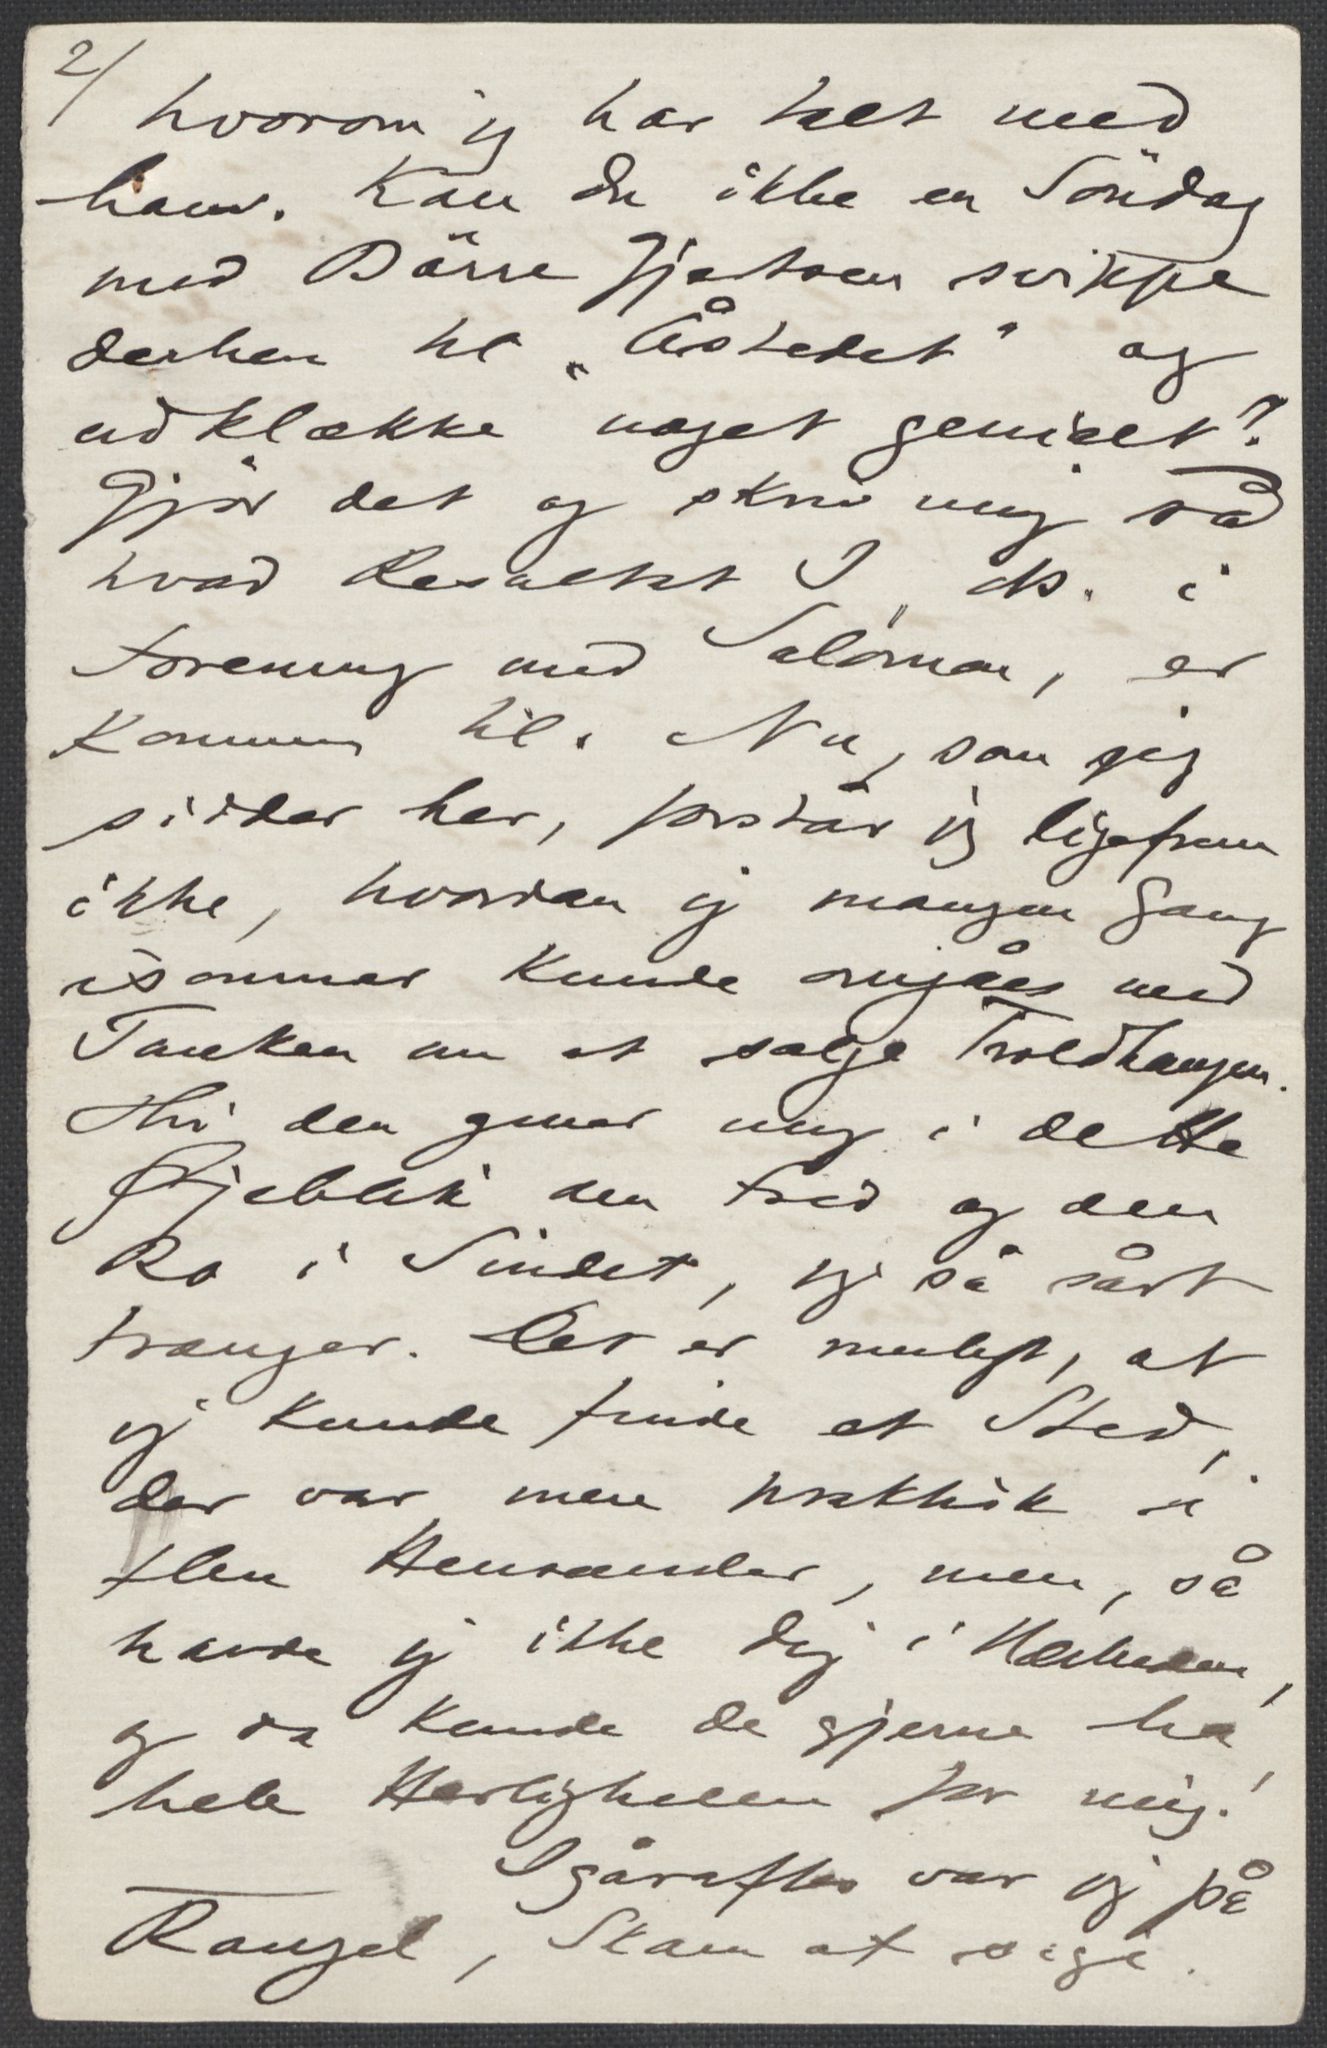 2/
hvorom jeg har talt med
ham. Kan du ikke en Söndag
med Börre Gjertsen svippe
derhen til "Åstedet" og
udklække noget genialt?
Gjör det og skriv mig så
hvad Resultat I, ds. i
Forening med Salomon, er
kommen til. Nu, som jeg
sidder her, forstår jeg ligefrem
ikke, hvordan jeg mangen Gang
isommer kunde omgåes med
Tanken om at sælge Troldhaugen.
Thi den giver mig i dette
Øjeblik den Fred og den
Ro i Sindet, jeg så sårt
trænger. Det er muligt, at
jeg kunde finde et Sted,
der var mere praktisk i
flere Henseender, men, så
havde jeg ikke dig i Nærheden,
og da kunde de gjerne ha
hele Herligheden for mig!
Igåraftes var jeg på
Rangel, Skam at sige.